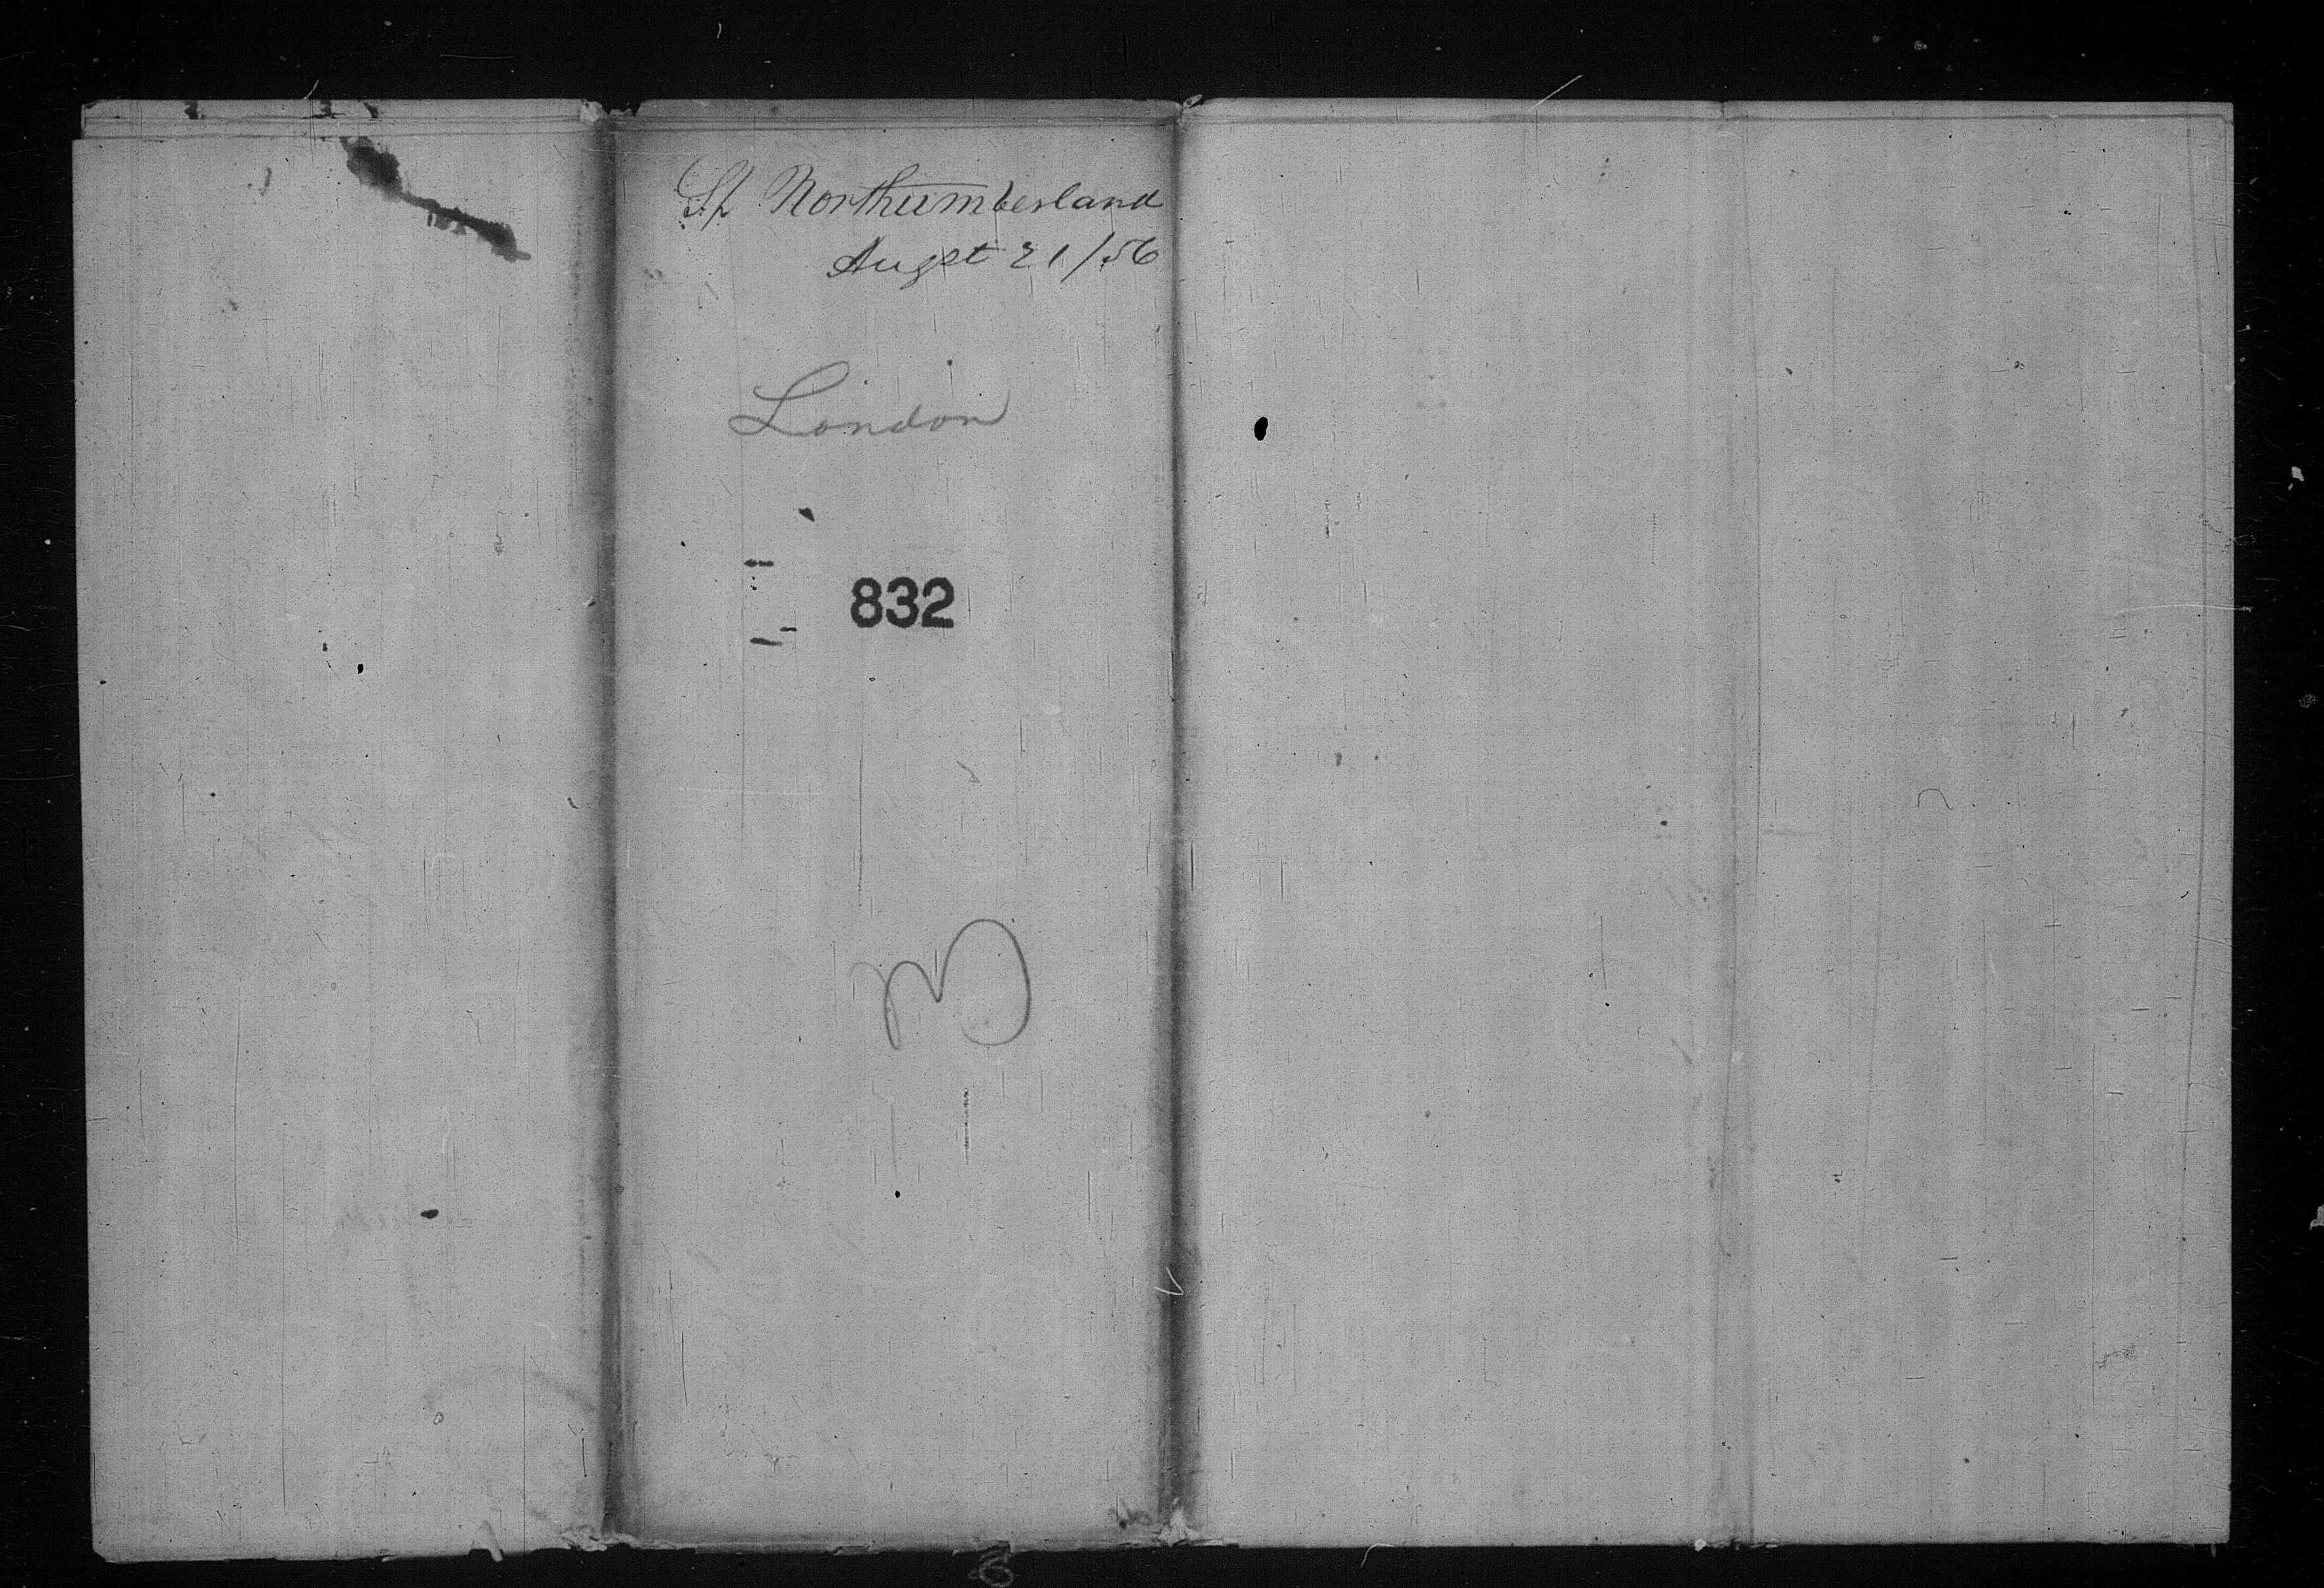 Sh Northumberland
Augst 21/56
London
832